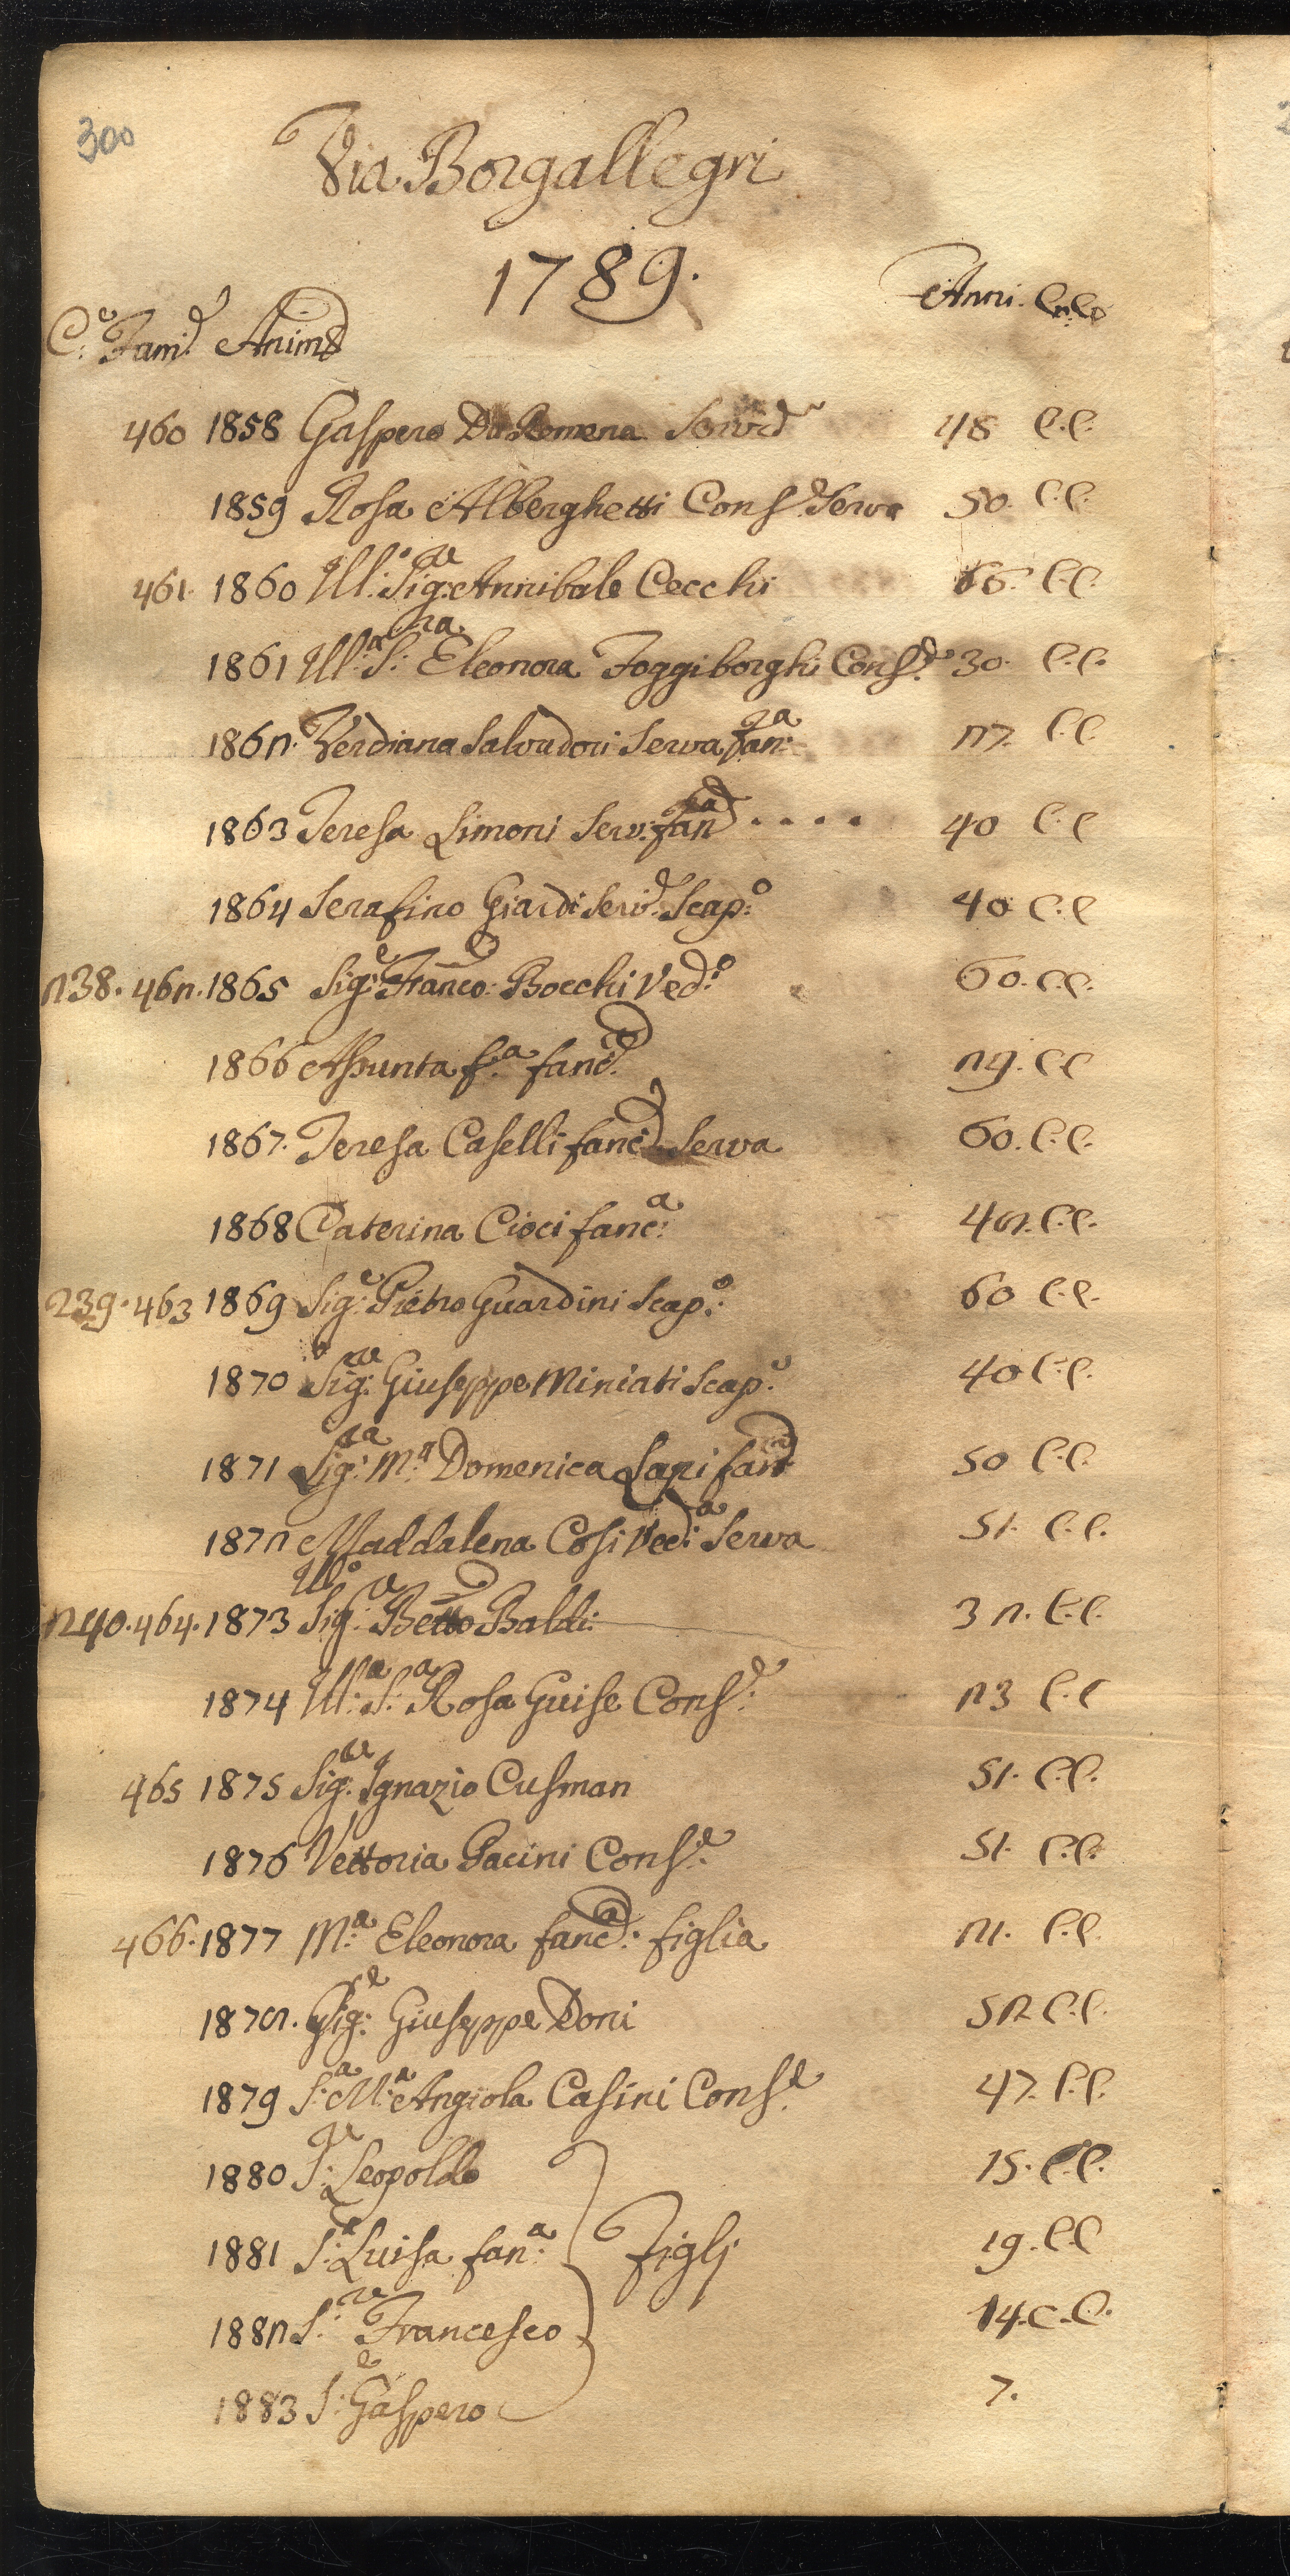 300
Via Borgallegri
1789.
Anni. C.C.
C.e Fam.e Anime
460 1858 Gaspero Da Romena Servid.e 48 C.C.
1859 Rosa Alberghetti Cons.e Serva 50. C.C.
461. 1860 Ill.o Sig.re Annibale Cecchi 66. C.C.
1861 Ill.a S.ra Eleonora Foggiborghi Cons.e 30. C.C.
1862. Verdiana Salvadori Serva fan.a 27. C.C.
1863 Teresa Simoni Serv. fan.a .... 40 C.C
1864 Serafino Giardi Serv.e Scap.o 40 C.C
238. 462. 1865 Sig.e Franco: Bocchi Ved.o 60. C.C.
1866 Assunta f.a fanc.a 29. C.C
1867. Teresa Caselli fanc.a Serva 60. C.C.
1868 Caterina Cioci fanc.a 42. C.C.
239. 463 1869 Sig.e Pietro Guardini Scap.o 60 C.C.
1870 Sig.re Giuseppe Miniati Scap.o 40 C.C.
1871 Sig.ra M.a Domenica Lapi fan.a 50 C.C.
1872 Maddalena Cosi Ved.a Serva 51. C.C.
240. 464. 1873 Ill.o Sig.re Betto Baldi 32. C.C.
1874 Ill.a S.a Rosa Guise Cons.e 23 C.C
465 1875 Sig.re Ignazio Cusman 51. C.C.
1876 Vettoria Pacini Cons.e 51. C.C.
466. 1877 M.a Eleonora fanc.a figlia 21. C.C.
1872. Sig.re Giuseppe Doni 52 C.C.
1879 S.a M.a Angiola Casini Cons.e 47. C.C.
1880 S.re Leopoldo 15. C.C.
1881 S.a Luisa fan.a Figlj 19. C.C
1882 S.re Francesco 14. C.C.
1883 S.e Gaspero 7.